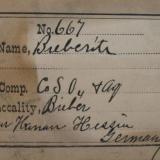 No. 667
Name, Bieberite
Comp. CoSO₄ + Aq
Locality, Bieber
nr Hanau Hessin
Germany